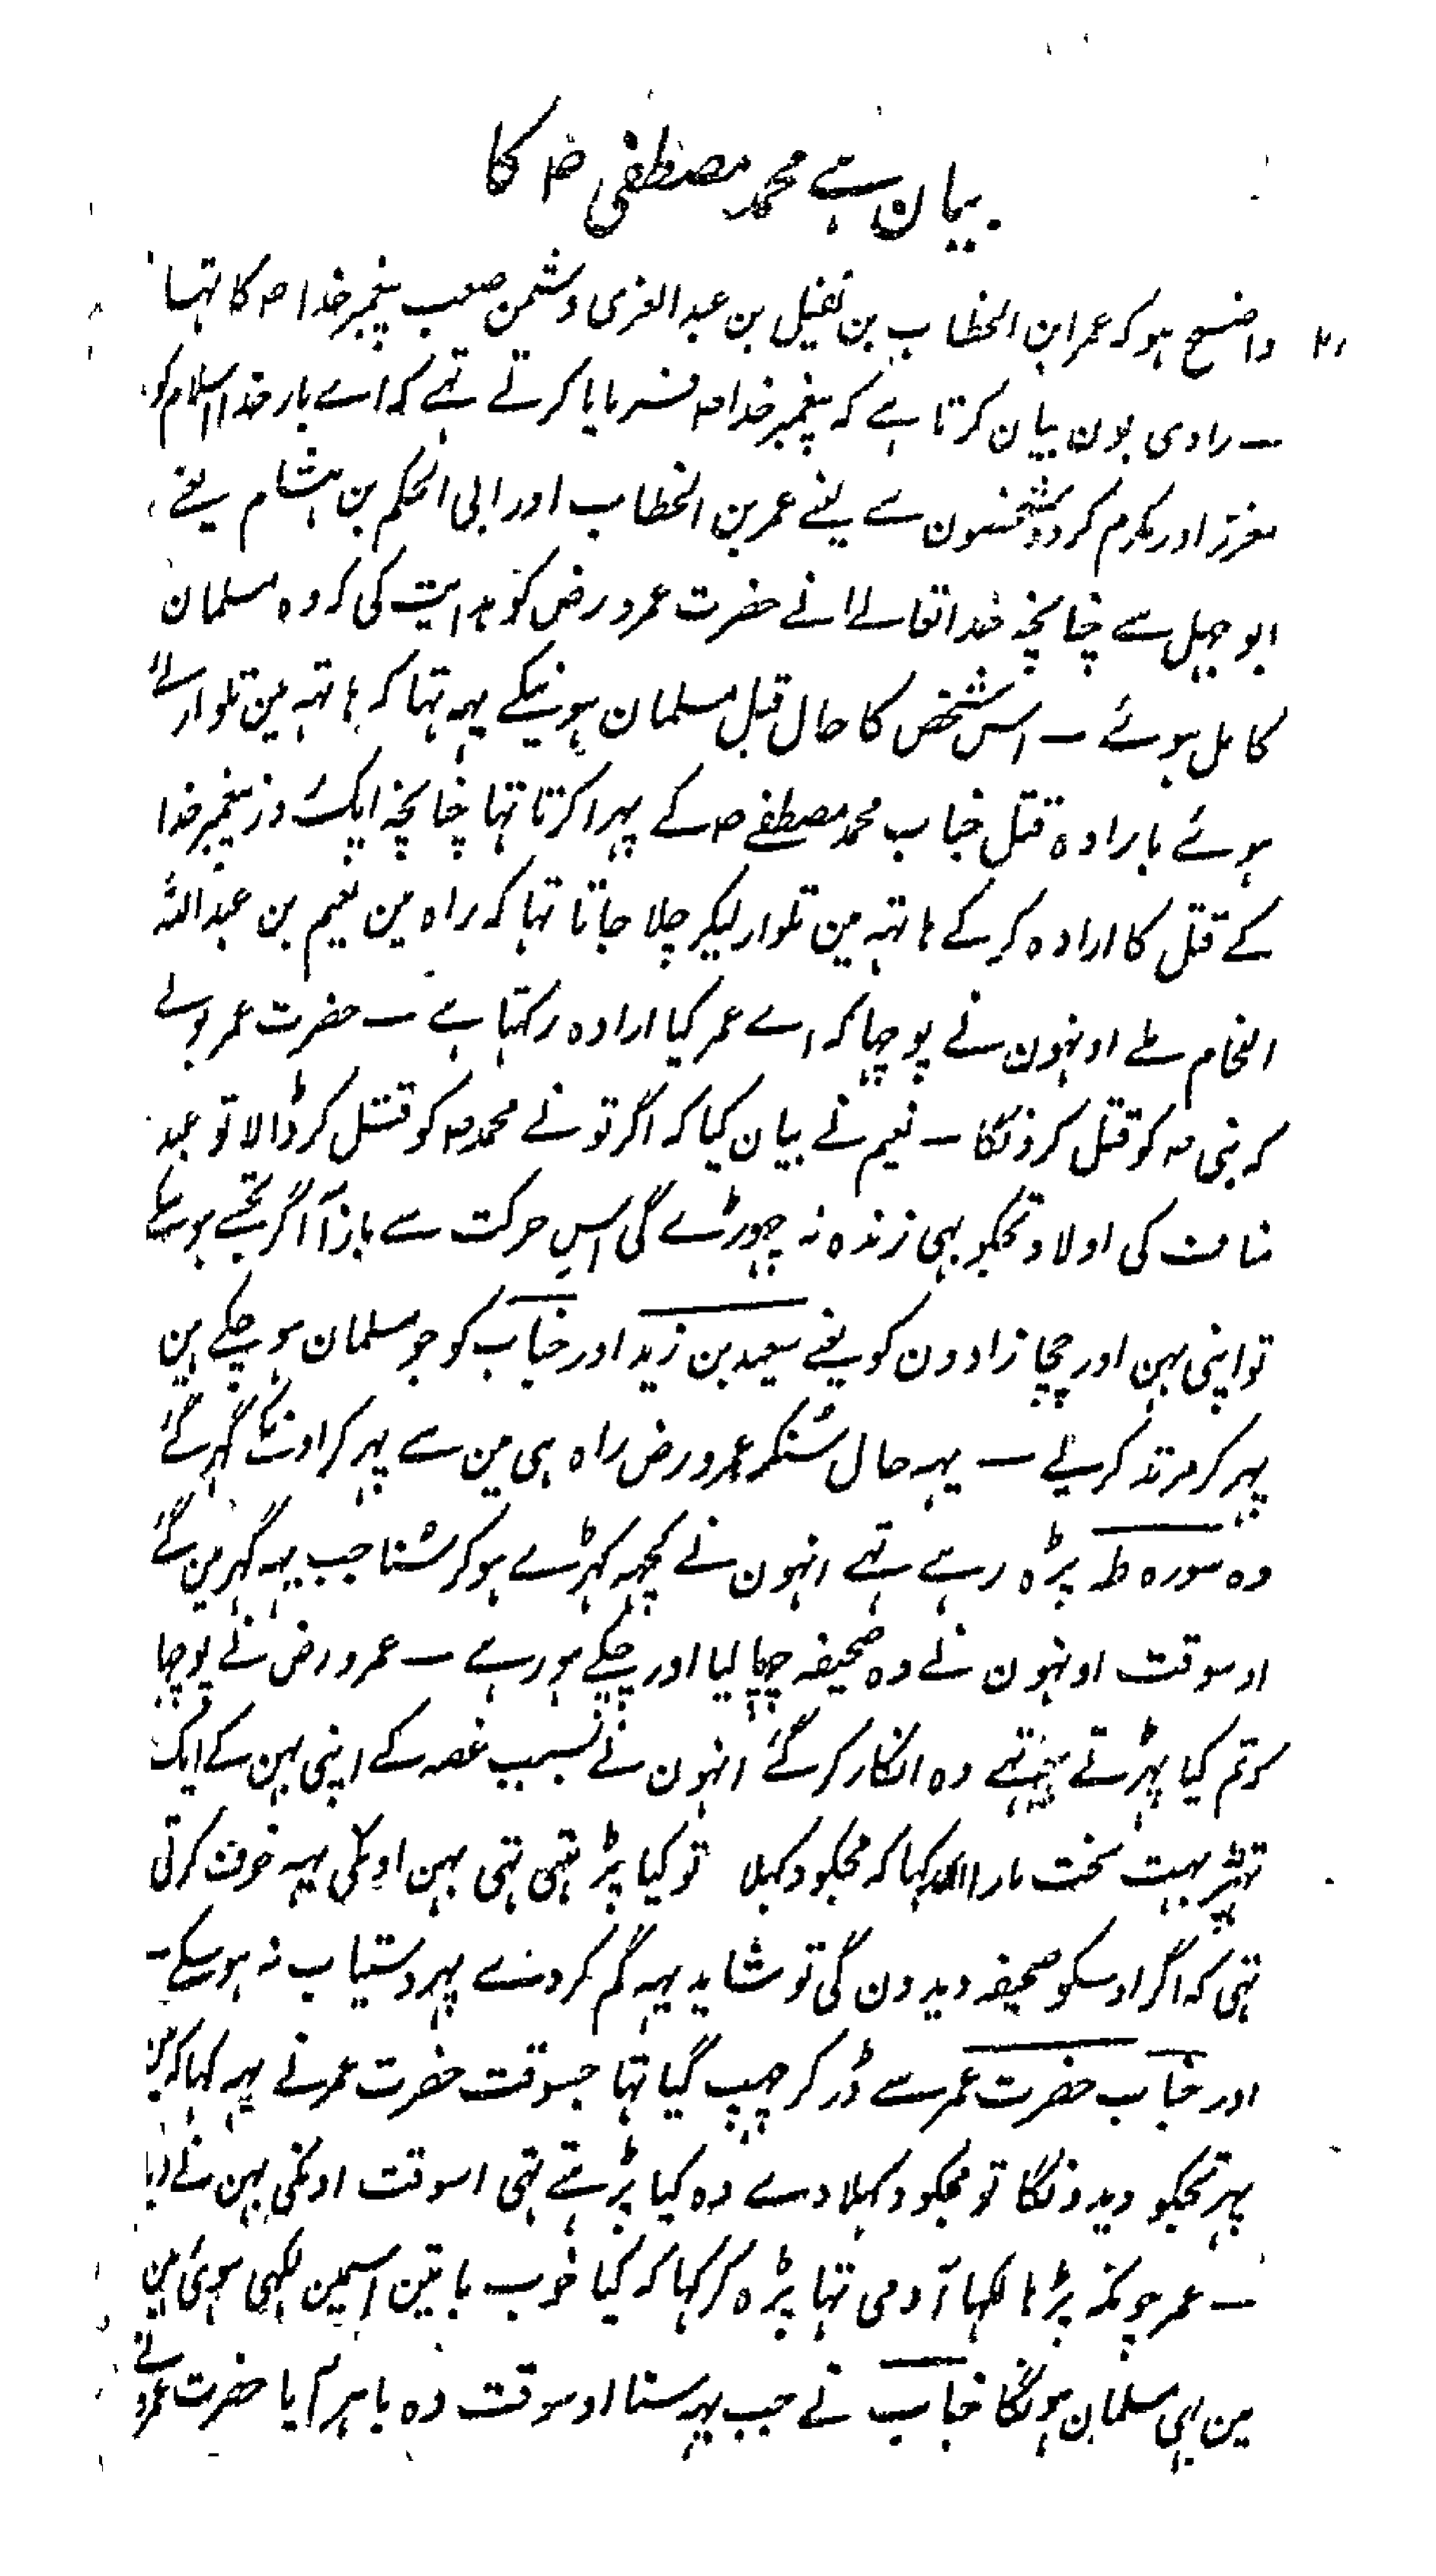 بیان ہے محمد مصطفی ص کا
واضح ہو کہ عمر ابن الخطاب بن نفیل بن عبد العزی دشمن صعب پیغمبر خدا ص کا تہا
ــ راوی یون بیان کرتا ہے کہ پیغمبر خدا ص فرمایا کرتے تہے کہ اے بار خدا اسلام کو
معزز اور مکرم کر دو شخصون سے یعنے عمر بن الخطاب اور ابی الحکم بن ہشام یعنے
ابو جہل سے چنانچہ خدا تعالے انے حضرت عمرو رض کو ہدایت کی کہ وہ مسلمان
کامل ہوئے ــ اس شخص کا حال قبل مسلمان ہونیکے یہہ تہا کہ ہاتہہ مین تلوار لئے
ہوئے بارادہ قتل جناب محمد مصطفے ص کے پہرا کرتا تہا چنانچہ ایک روز پیغمبر خدا
کے قتل کا ارادہ کر کے ہاتہہ مین تلوار لیکر چلا جاتا تہا کہ راہ مین نعیم بن عبد اللہ
النحام ملے اونہون نے پوچہا کہ اے عمر کیا ارادہ رکہتا ہے ــ حضرت عمر بولے
کہ نبی ص کو قتل کرونگا ــ نعیم نے بیان کیا کہ اگر تو نے محمد ص کو قتل کر ڈالا تو عبد
مناف کی اولاد تجکو بہی زندہ نہ چہوڑے گی اس حرکت سے باز آ اگر تجہے ہو سکے
تو اپنی بہن اور چچا زادون کو یعنے سعید بن زید اور خباب کو جو مسلمان ہو چکے ہین
پہر کر مرتد کر لے ــ یہہ حال سُنکر عمرو رض راہ ہی مین سے پہر کر اونکے گہر گئے
وہ سورہ طہ پڑہ رہے تہے انہون نے کچہہ کہڑے ہو کر سُنا جب یہہ گہر مین گئے
اوسوقت اونہون نے وہ صحیفہ چہپا لیا اور چپکے ہو رہے ــ عمرو رض نے پوچہا
کہ تم کیا پہڑتے تہے وہ انکار کر گئے انہون نے بسبب غصہ کے اپنی بہن کے ایک
تہپڑ بہت سخت مارا اور کہا کہ مجکو دکہلا تو کیا پڑہتی تہی بہن اونکی یہہ خوف کرتی
تہی کہ اگر اوسکو صحیفہ دیدون گی تو شاید یہہ گم کر دے پہر دستیاب نہ ہو سکے ــ
اور خباب حضرت عمر سے ڈر کر چہپ گیا تہا جسوقت حضرت عمر نے یہہ کہا کہ مین
پہر تجکو دیدونگا تو مجکو دکہلا دے وہ کیا پڑہتے تہی اسوقت اونکی بہن نے دیا
ــ عمر چونکہ پڑہا لکہا آدمی تہا پڑہ کر کہا کہ کیا خوب باتین اسمین لکہی ہوئی ہین
مین بہی مسلمان ہونگا خباب نے جب یہہ سنا اوسوقت وہ باہر آیا حضرت عمرو نے